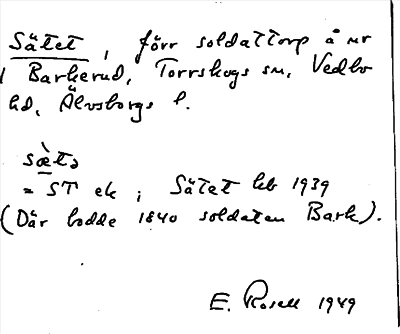 Sätet, förr soldattorp å nr
1 Barkerud, Torrskogs sn, Vedbo
hd, Älvsborgs l.
sæ̀tə
= ST ek ; Sätet hb 1939
(Där bodde 1840 soldaten Bark).
E. Rosell 1949